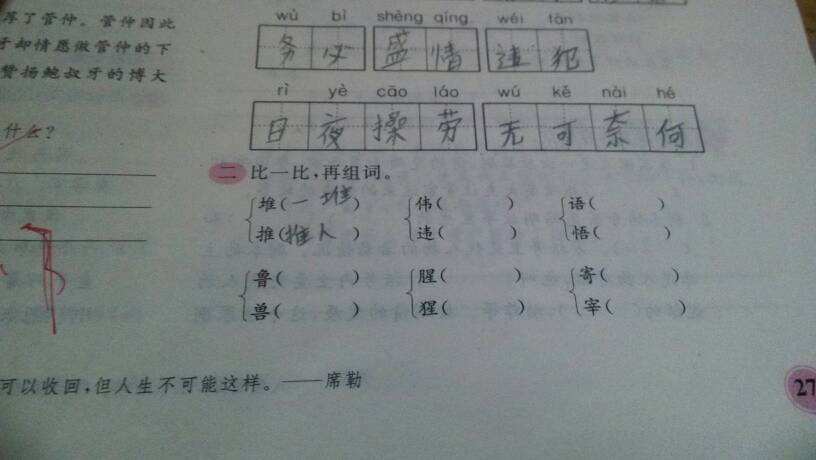 厚了管仲。管仲因此
牙却情愿做管仲的下
赞扬鲍叔牙的博大
什么?
wù bì shèng qíng wéi fàn
务必 盛情 违犯
rì yè cāo láo wú kě nài hé
日夜操劳 无可奈何
二 比一比,再组词。
堆(一堆) 伟( ) 语( )
推(推人) 违( ) 悟( )
鲁( ) 腥( ) 寄( )
兽( ) 猩( ) 宰( )
可以收回,但人生不可能这样。——席勒
27